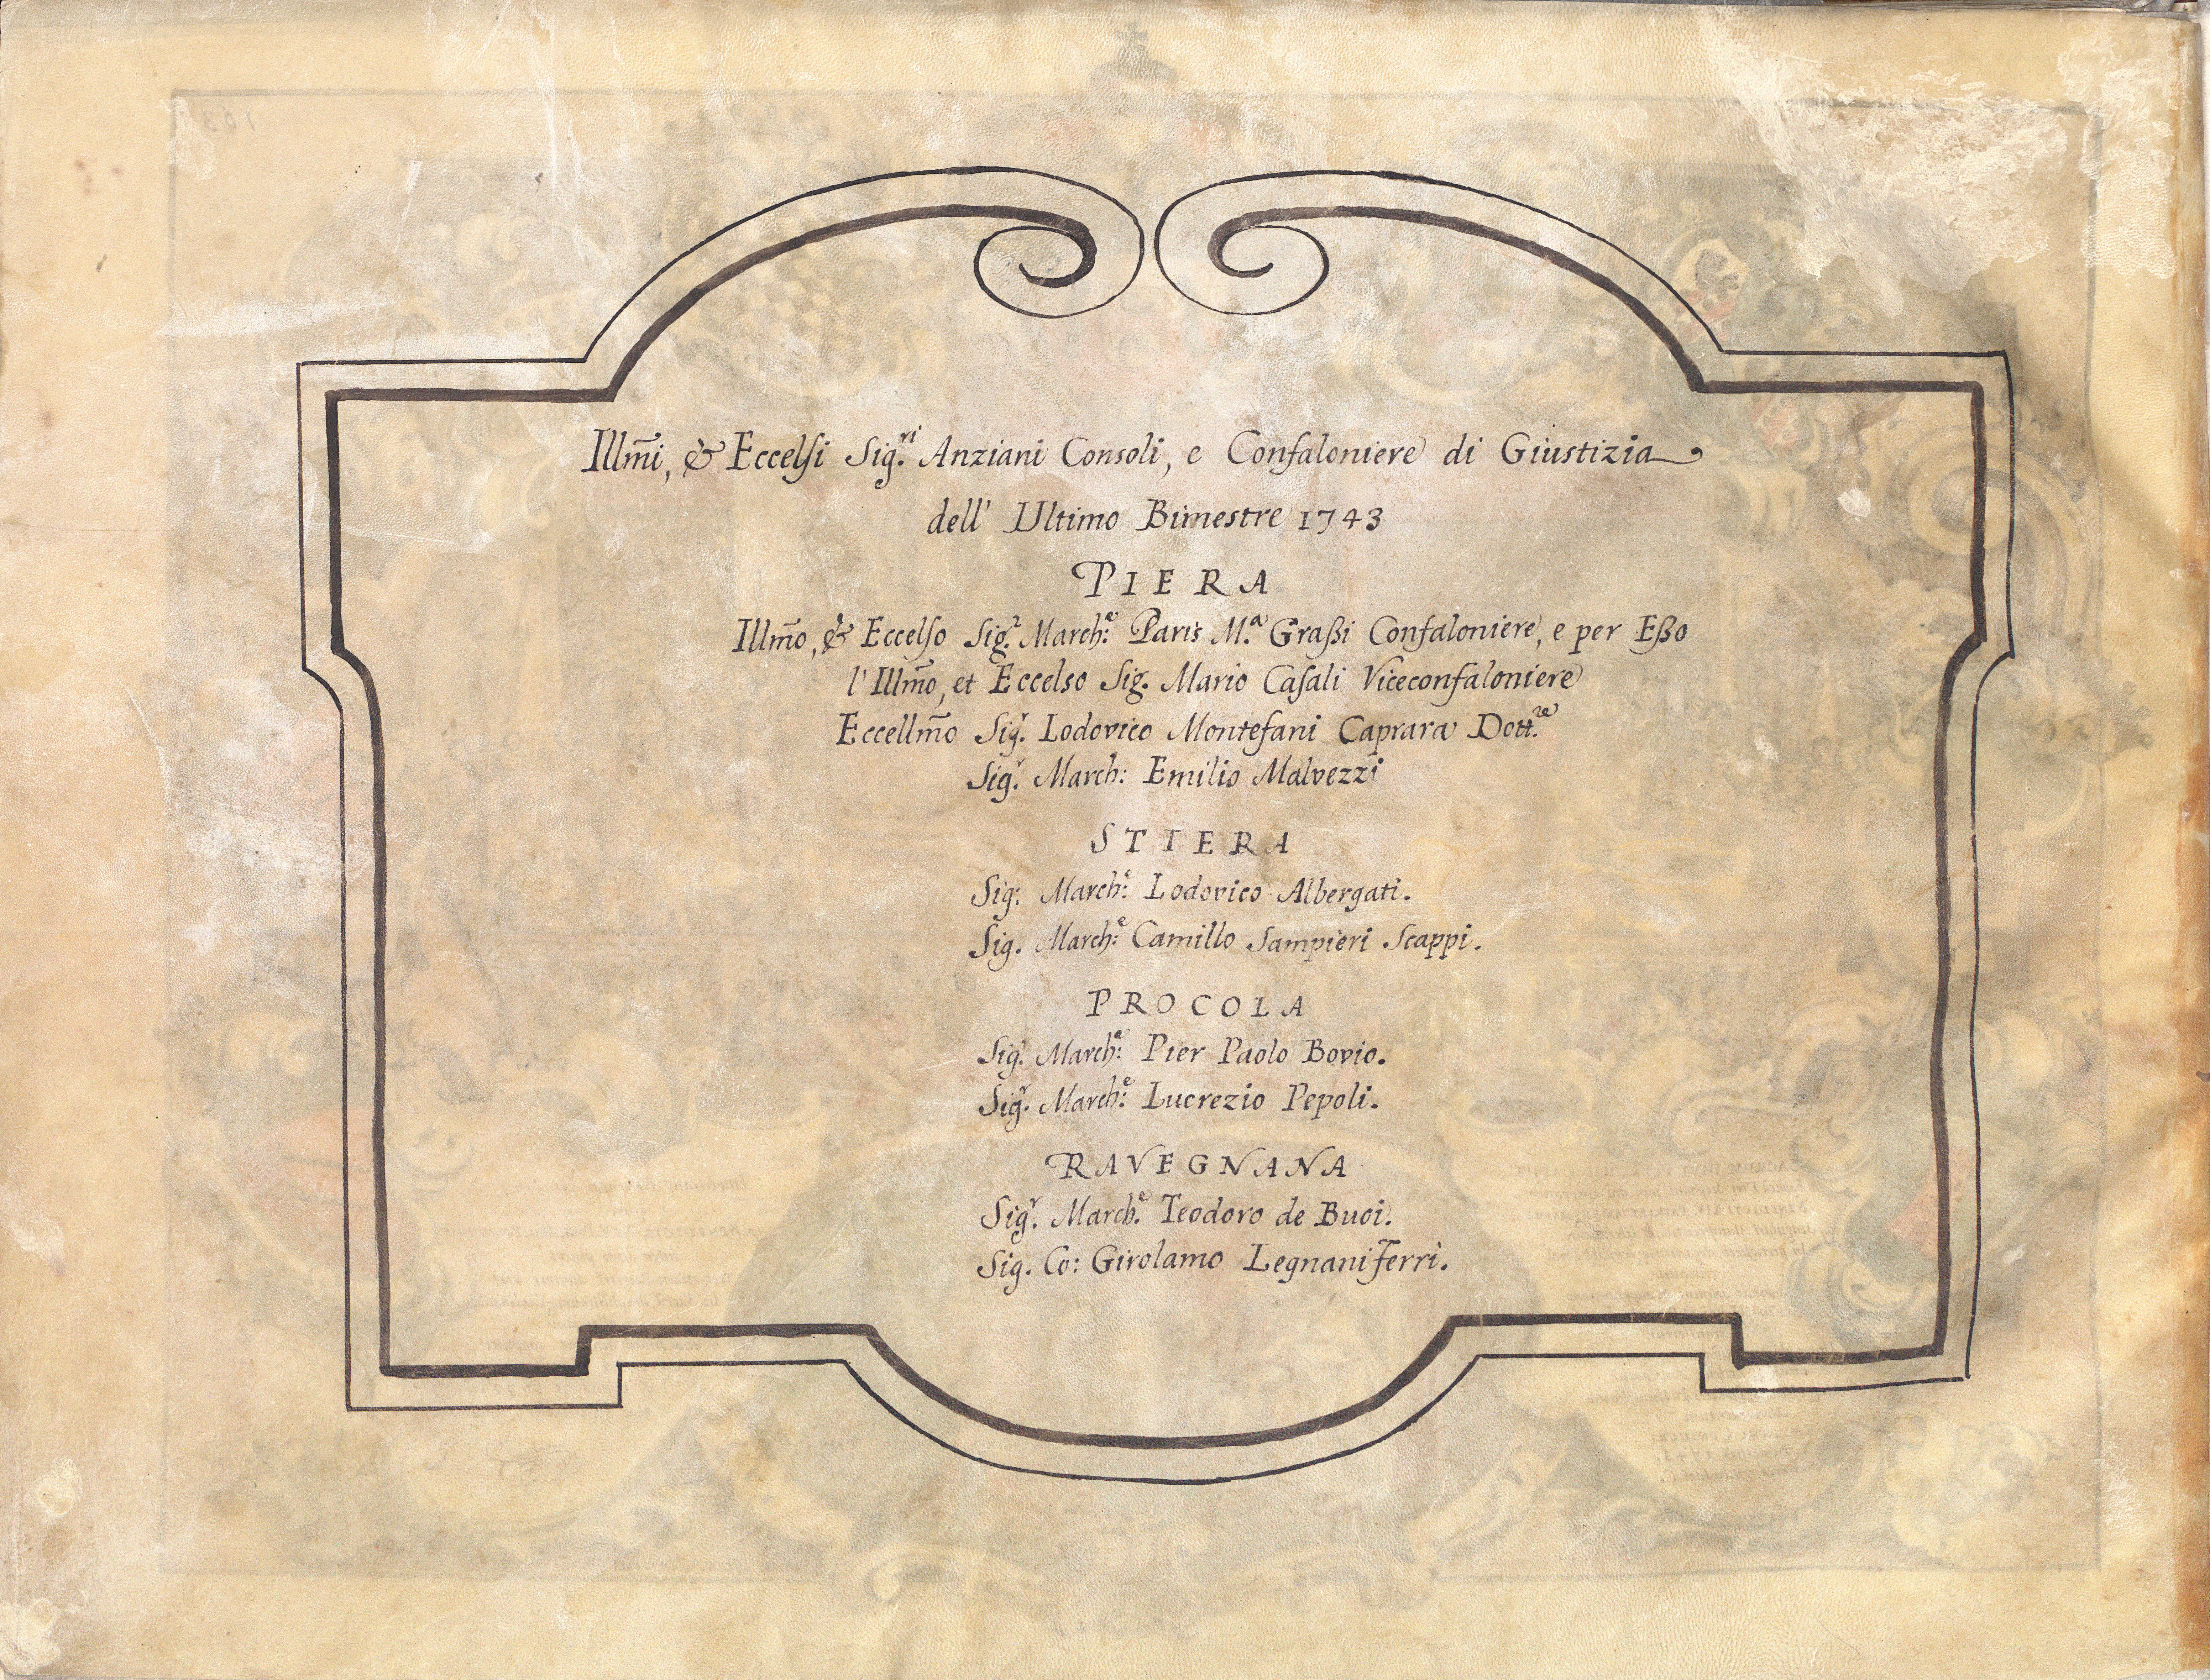 Illm̃i, & Eccelsi Sig.ri Anziani Consoli, e Confaloniere di Giustizia
dell' Ultimo Bimestre 1743
PIERA
Illm̃o, & Eccelso Sig.r March:e Paris M.a Graßi Confaloniere, e per Eßo
l'Illm̃o, et Eccelso Sig. Mario Casali Viceconfaloniere
Eccellm̃o Sig.r Lodovico Montefani Caprara Dott.re
Sig.r March: Emilio Malvezzi
STIERA
Sig: March:e Lodovico Albergati.
Sig. March:e Camillo Sampieri Scappi.
PROCOLA
Sig.r March:e Pier Paolo Bovio.
Sig.r March:e Lucrezio Pepoli.
RAVEGNANA
Sig.r March.e Teodoro de Buoi.
Sig. Co: Girolamo Legnani Ferri.